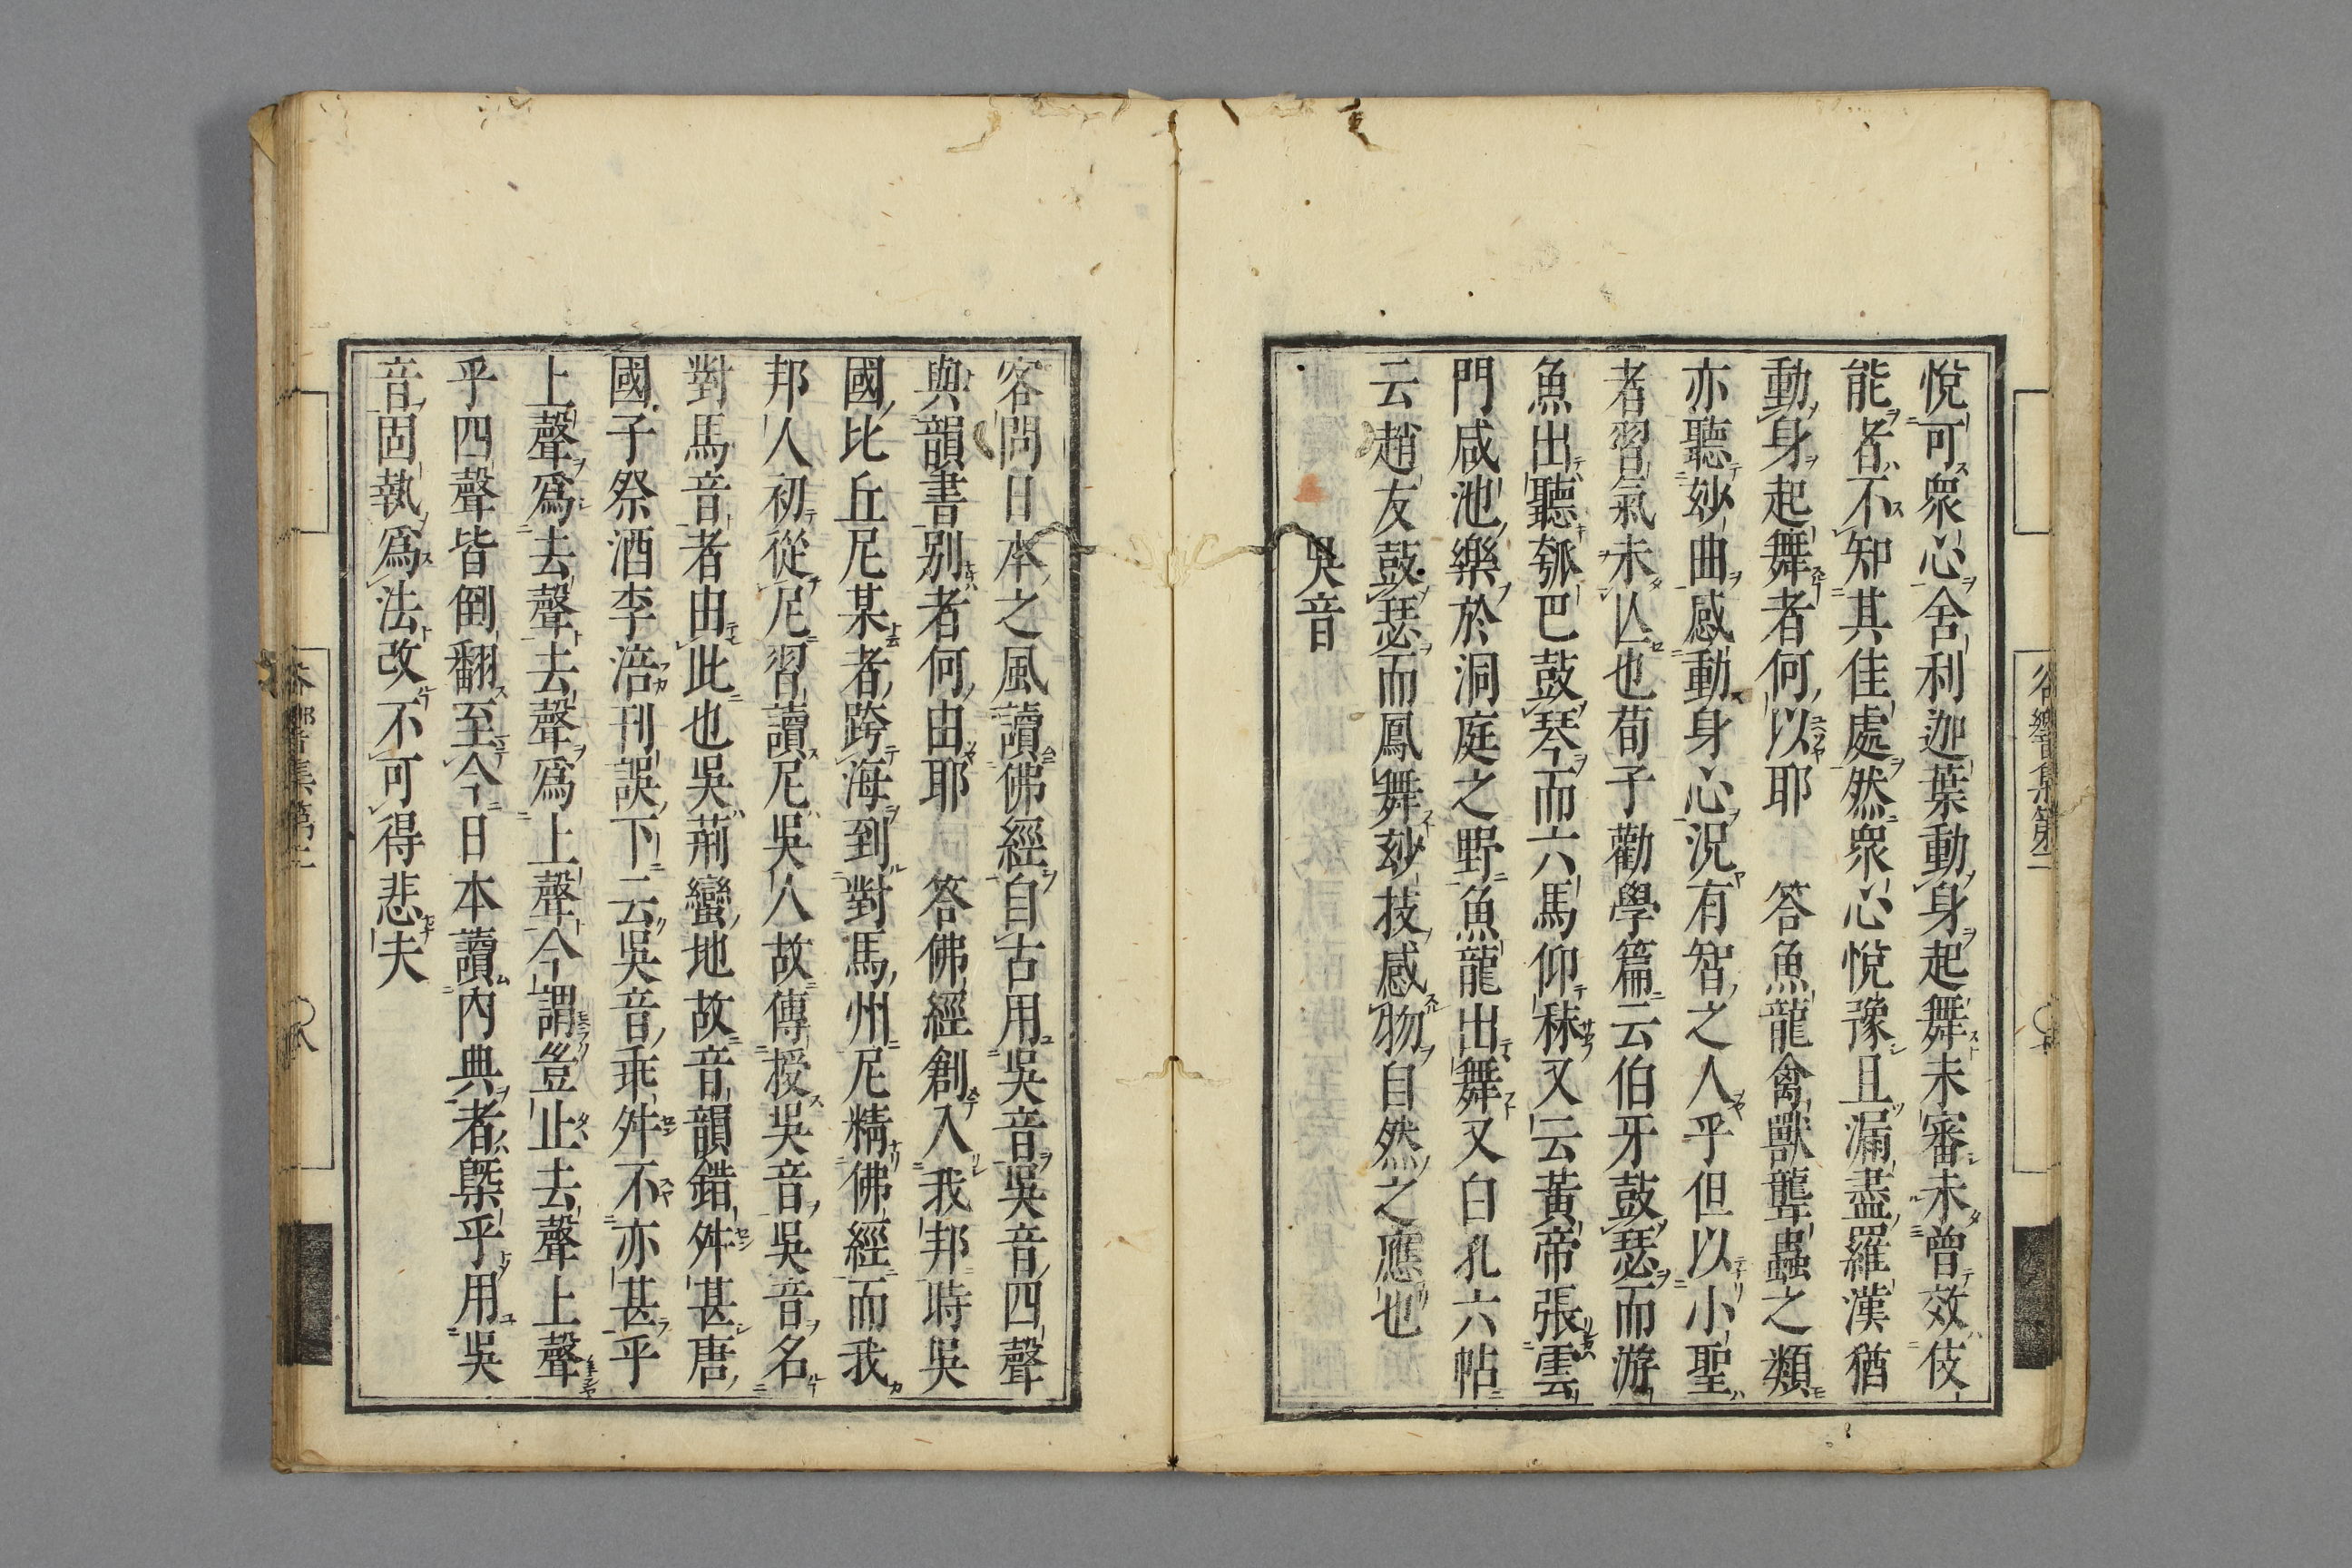 悅可衆心舍利迦葉動身起舞未審未曾效伎
能者不知其佳處然衆心悅豫且漏盡羅漢猶
動身起舞者何以耶　答魚龍禽獸聾蟲之類
亦聽妙曲感動身心況有智之人乎但以小聖
者習氣未亾也荀子勸學篇云伯牙鼓瑟而游
魚出聽瓠巴鼓琴而六馬仰秣又云黃帝張雲
門咸池樂於洞庭之野魚龍出舞又白孔六帖
云趙友鼓瑟而鳳舞玅技感物自然之應也
吳音
客問日本之風讀佛經自古用吳音吳音四聲
與韻書別者何由耶　答佛經創入我邦時吳
國比丘尼某者跨海到對馬州尼精佛經而我
邦人初從尼習讀尼吳人故傳授吳音吳音名
對馬音者由此也吳荊蠻地故音韻錯舛甚唐
國子祭酒李涪刊誤下云吳音乖舛不亦甚乎
上聲爲去聲去聲爲上聲今謂豈止去聲上聲
乎四聲皆倒翻至今日本讀內典者槩乎用吳
音固執爲法改不可得悲夫